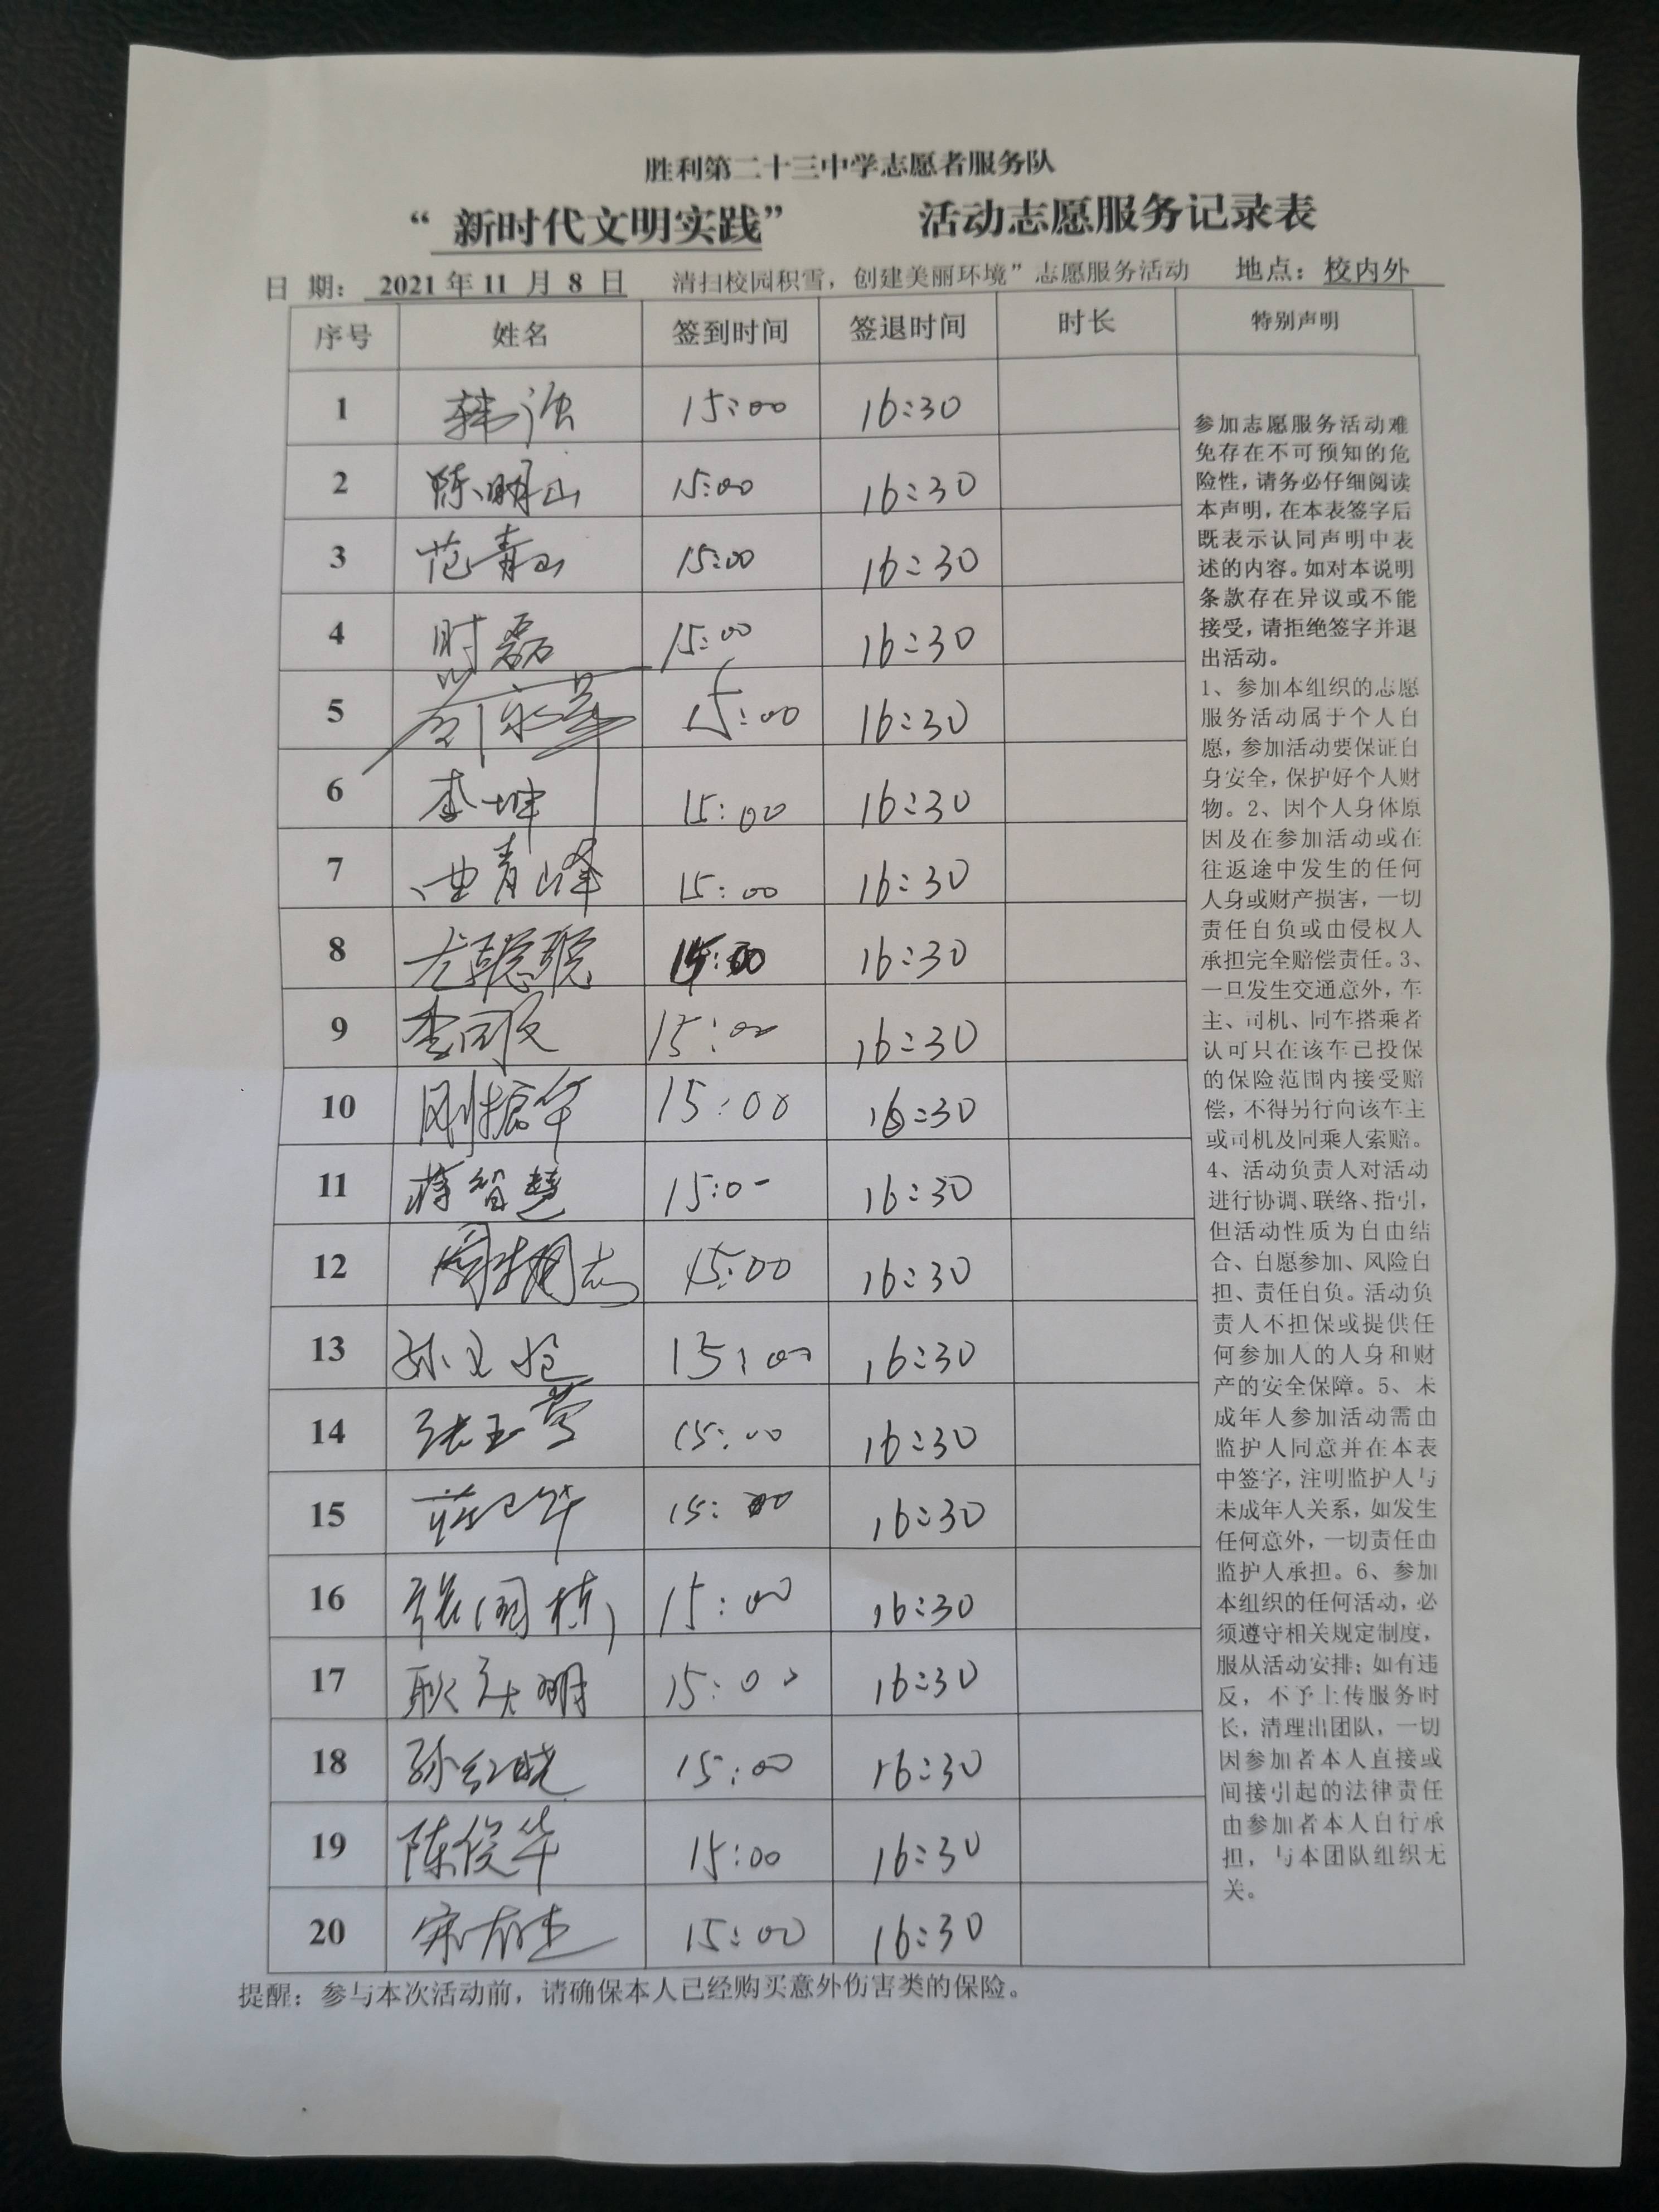 胜利第二十三中学志愿者服务队
“新时代文明实践” 活动志愿服务记录表
日 期： 2021 年 11 月 8 日 清扫校园积雪，创建美丽环境”志愿服务活动 地点：校内外
序号 姓名 签到时间 签退时间 时长 特别声明
1 韩 15:00 16:30
2 陈明山 15:00 16:30
3 范青 15:00 16:30
4 时磊 15:00 16:30
5 15:00 16:30
6 李坤 15:00 16:30
7 曲青峰 15:00 16:30
8 尤聪聪 15:00 16:30
9 李 15:00 16:30
10 刚振华 15:00 16:30
11 蒋智慧 15:00 16:30
12 周 15:00 16:30
13 孙 15:00 16:30
14 张玉莺 15:00 16:30
15 华 15:00 16:30
16 张国栋 15:00 16:30
17 耿 明 15:00 16:30
18 孙红晓 15:00 16:30
19 陈俊华 15:00 16:30
20 宋 15:00 16:30
参加志愿服务活动难
免存在不可预知的危
险性，请务必仔细阅读
本声明，在本表签字后
既表示认同声明中表
述的内容。如对本说明
条款存在异议或不能
接受，请拒绝签字并退
出活动。
1、参加本组织的志愿
服务活动属于个人自
愿，参加活动要保证自
身安全，保护好个人财
物。2、因个人身体原
因及在参加活动或在
往返途中发生的任何
人身或财产损害，一切
责任自负或由侵权人
承担完全赔偿责任。3、
一旦发生交通意外，车
主、司机、同车搭乘者
认可只在该车已投保
的保险范围内接受赔
偿，不得另行向该车主
或司机及同乘人索赔。
4、活动负责人对活动
进行协调、联络、指引，
但活动性质为自由结
合、自愿参加、风险自
担、责任自负。活动负
责人不担保或提供任
何参加人的人身和财
产的安全保障。5、未
成年人参加活动需由
监护人同意并在本表
中签字，注明监护人与
未成年人关系，如发生
任何意外，一切责任由
监护人承担。6、参加
本组织的任何活动，必
须遵守相关规定制度，
服从活动安排；如有违
反，不予上传服务时
长，清理出团队，一切
因参加者本人直接或
间接引起的法律责任
由参加者本人自行承
担，与本团队组织无
关。
提醒：参与本次活动前，请确保本人已经购买意外伤害类的保险。